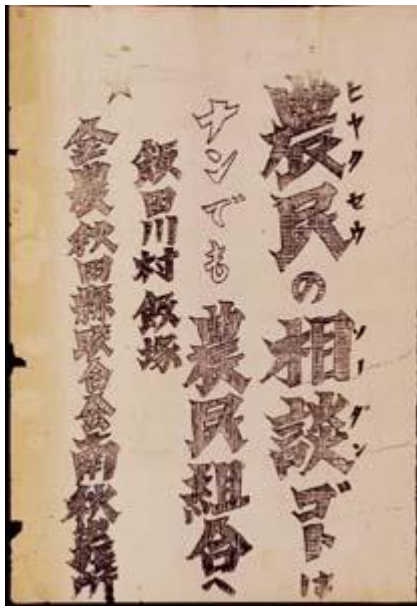 ヒヤクセウ ソーダン
農民の相談ゴトは
ナンでも農民組合へ
飯田川村飯塚
全農秋田縣聯合会南秋